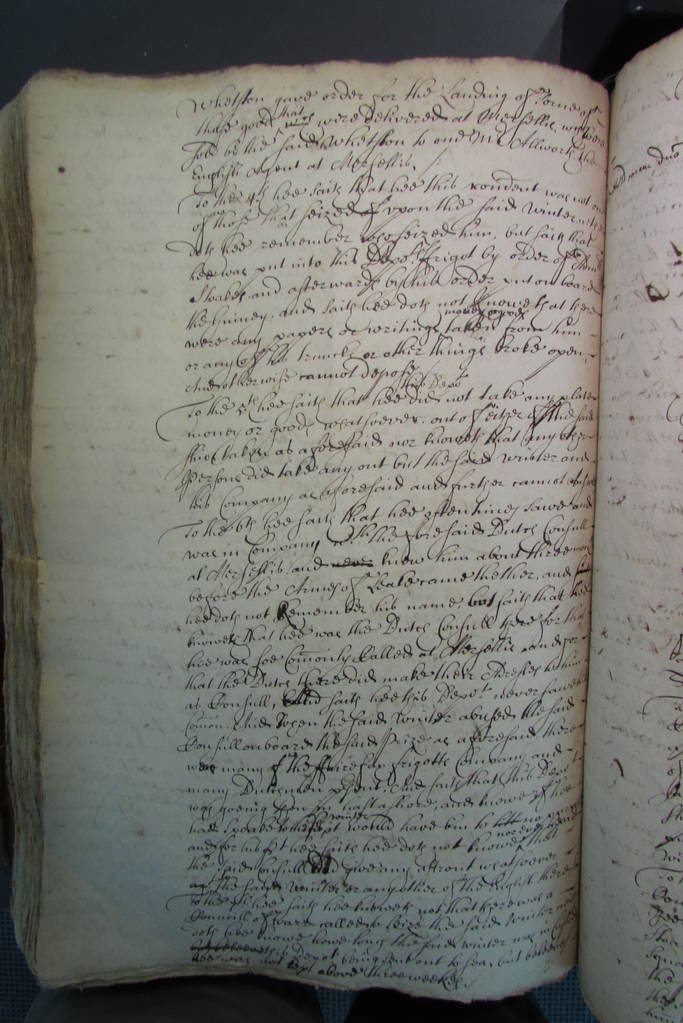 Whetston gave order for the Landing of some of
those goods that were delivered at Mersellis, wch were
sold be the said Whetston to one Mr Allworth the
English Agent at Mersellis.
To the 4th hee saith that hee this rendent was not one
of those that seized upon the said Winter nor
doth hee remember who seized him, but saith that
hee was put into this Depots frigot by order of
Stoakes and afterwards by his order put on board
the Guiney, and saith hee doth not knowe that there
were any papers or writings money or goods taken from him
or any of his trunck or other things broke open
And otherwise cannot depose
To the 5th hee saith that hee this Depot did not take any plate
money or goods whatsoever out of either of the said
ships taken as aforesaid nor knoweth that any other
Persons did take any out but the said Winter and
his Company as aforesaid and further cannot depose
To the 6th hee saith that hee often times sawe and
was in Company with the foresaid Dutch Consull
at Mersellis and never knew him about three
before the Armes of Leake came thether, and
hee doth not Remember his name, but saith that hee
knoweth that hee was the Dutch Consull there for that
hee was soe Comonly called at Mersellis and for
that the Dutch there did make their Adresses to him
as Consull, And saith hee this Depot never sawe
And when the said Winter abused the said
Consull onboard the said Prize as aforesaid there
were many of the frigotts Company and
many Dutchmen present. And saith that this Depot
was goeing ashore, and knewe if hee
had spoake to the said Winter would have bin to
and for his pt hee saith hee doth not knowe nor ever heard that
the said Consull did give any affront whatsoever
to the said Winter or any other of the English there
To the 7th hee saith hee knoweth not that there was a
Councill of warr called to seize the said Winter nor
doth hee knowe howe long the said Winter was in
this depot being sent out to sea, but
hee was not kept above three weekes.